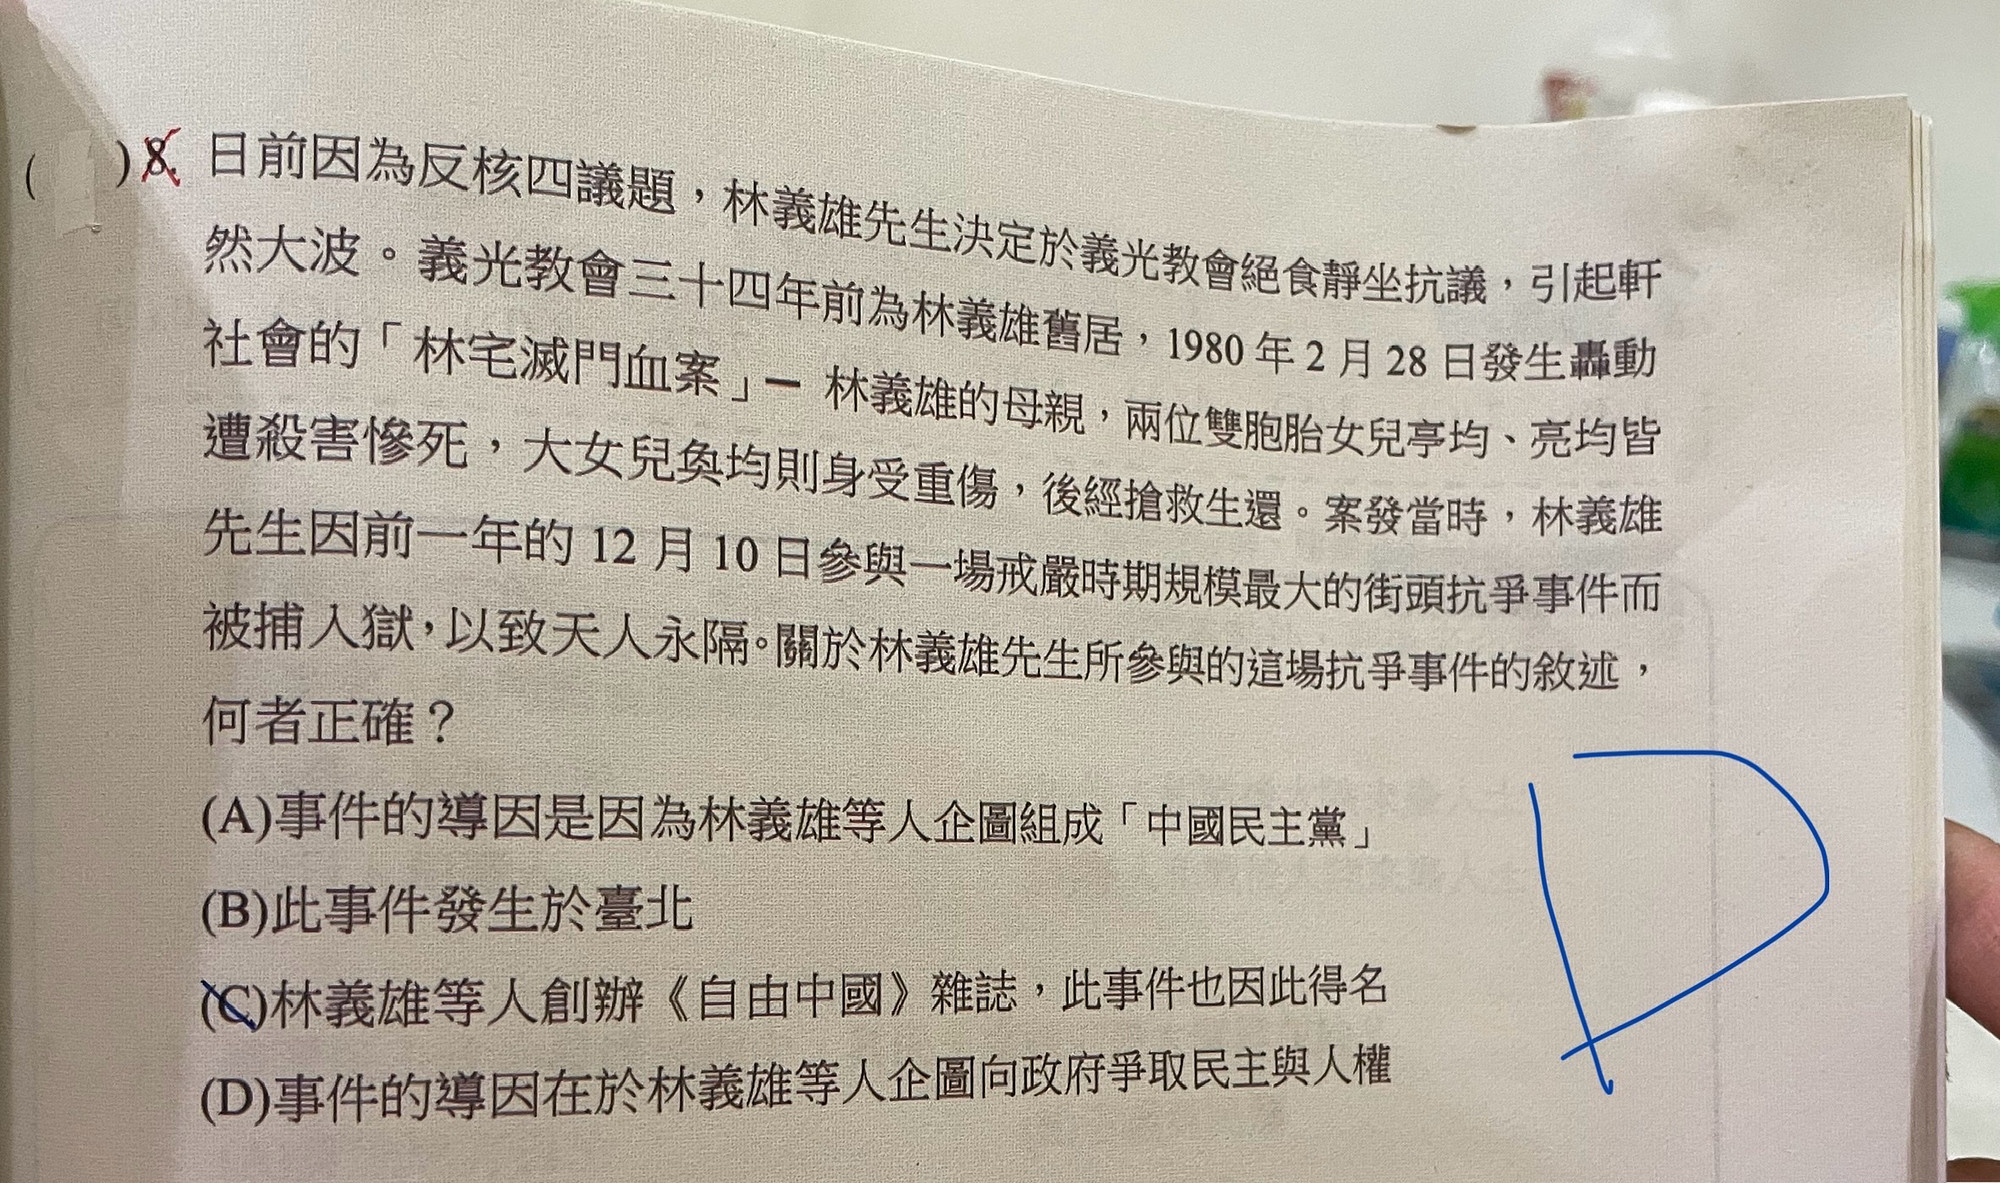 (   )8. 日前因為反核四議題，林義雄先生決定於義光教會絕食靜坐抗議，引起軒
然大波。義光教會三十四年前為林義雄舊居，1980 年 2 月 28 日發生轟動
社會的「林宅滅門血案」— 林義雄的母親，兩位雙胞胎女兒亭均、亮均皆
遭殺害慘死，大女兒奐均則身受重傷，後經搶救生還。案發當時，林義雄
先生因前一年的 12 月 10 日參與一場戒嚴時期規模最大的街頭抗爭事件而
被捕入獄，以致天人永隔。關於林義雄先生所參與的這場抗爭事件的敘述，
何者正確？
(A)事件的導因是因為林義雄等人企圖組成「中國民主黨」
(B)此事件發生於臺北
(C)林義雄等人創辦《自由中國》雜誌，此事件也因此得名
(D)事件的導因在於林義雄等人企圖向政府爭取民主與人權
D